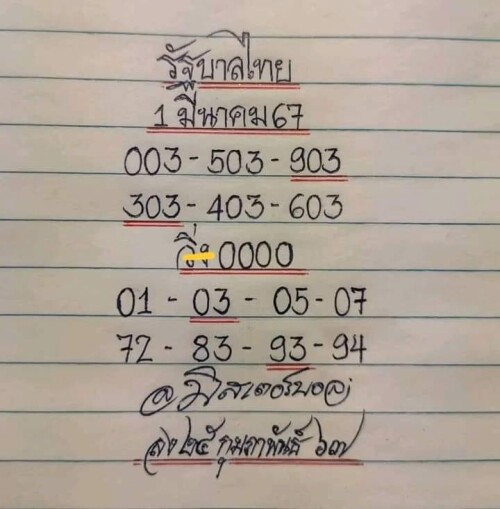 รัฐบาลไทย
1 มีนาคม 67
003 - 503 - 903
303 - 403 - 603
วิ่ง 0000
01 - 03 - 05 - 07
72 - 83 - 93 - 94
@มิสเตอร์บอล
ลง ๒๕ กุมภาพันธ์ ๖๗